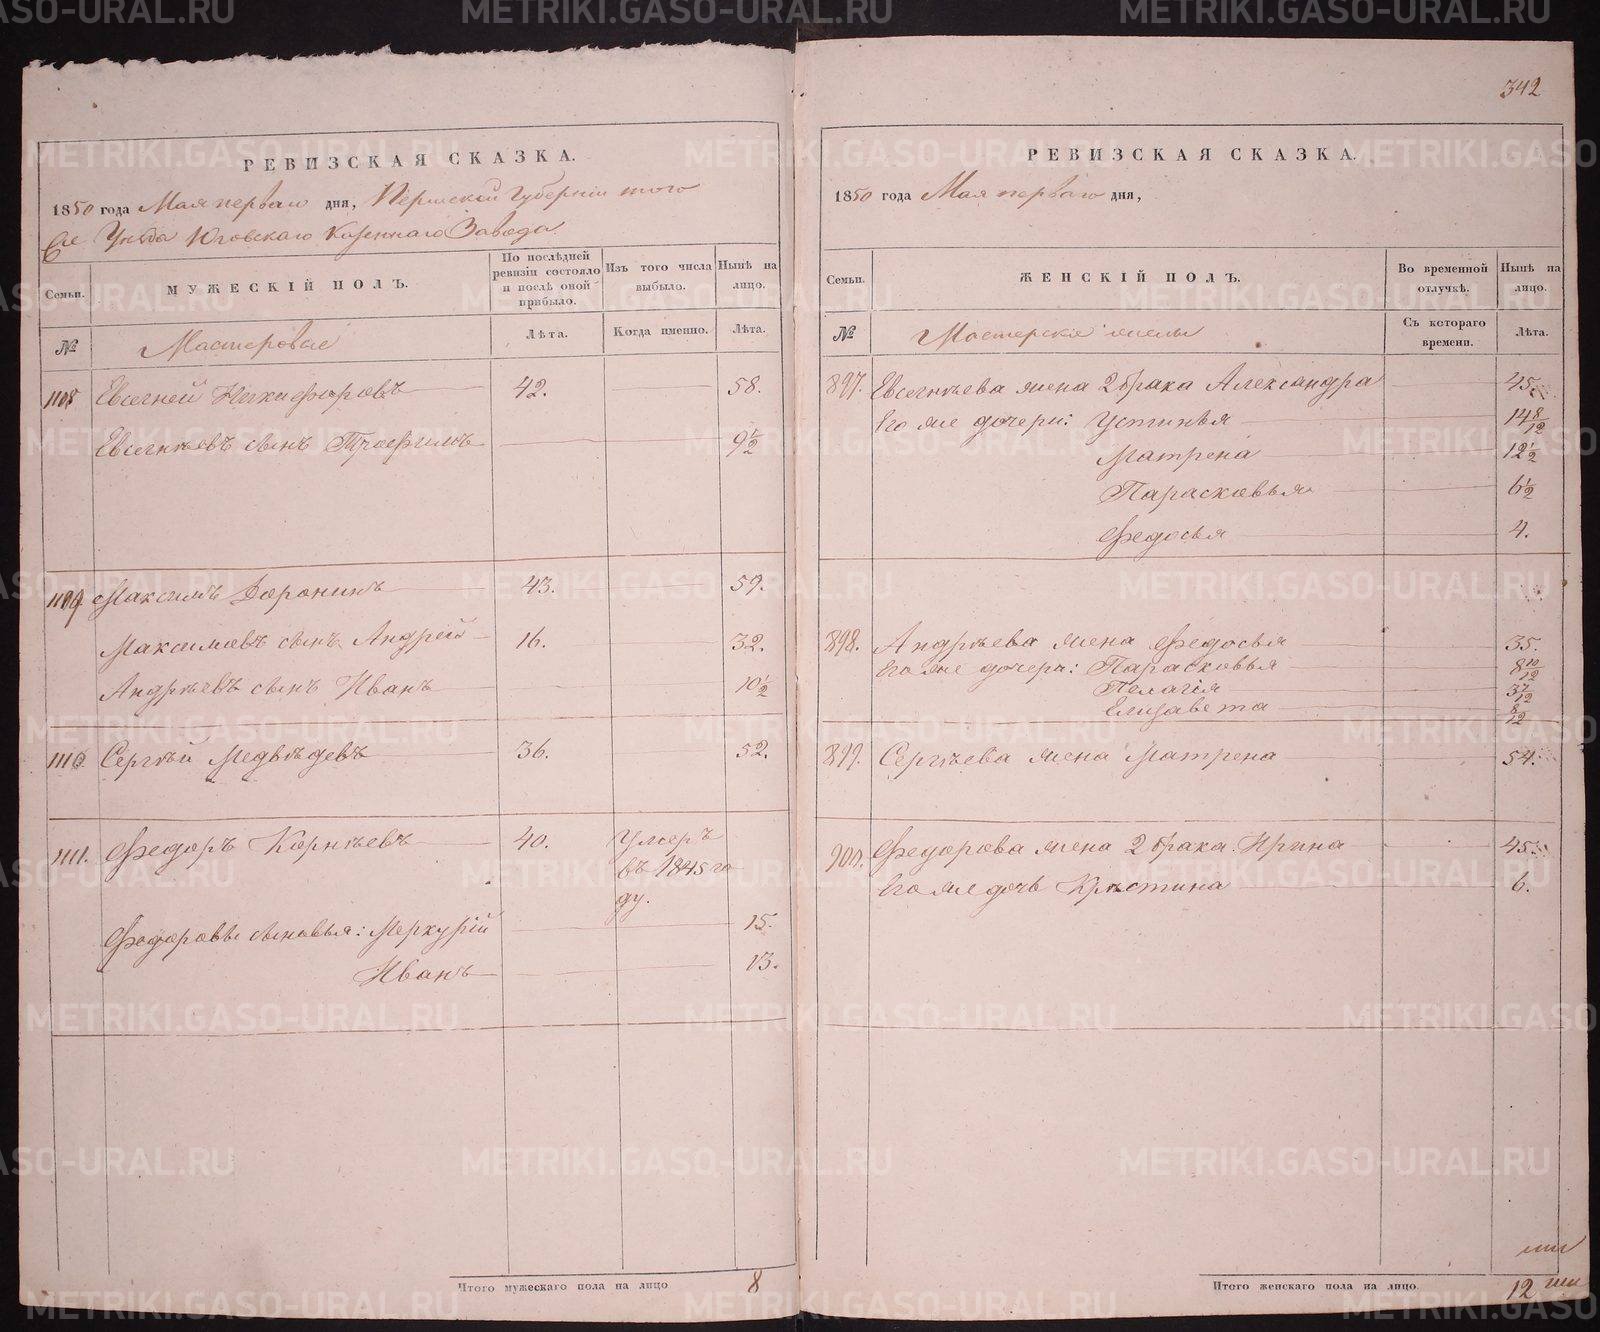 342
РЕВИЗСКАЯ СКАЗКА.
1850 года Мая перваго дня, Пермской Губерніи того
же Уѣзда Юговскаго Казеннаго Завода
Семьи. МУЖЕСКІЙ ПОЛЪ. По послѣдней ревизіи состояло и послѣ оной прибыло. Изъ того числа выбыло. Нынѣ на лицо.
№ Мастеровые Лѣта. Когда именно. Лѣта.
1108 Евсегней Никифоровъ 42. 58.
Евсегнѣевъ сынъ Трофимъ 9 1/2
1109. Максимъ Доронинъ 43. 59.
Максимовъ сынъ Андрей 16. 32.
Андрѣевъ сынъ Иванъ 10 1/2
1110 Сергѣй Медвѣдевъ 36. 52.
1111. Федоръ Корнѣевъ 40. Умеръ
въ 1845 го
ду.
Федоровы сыновья: Меркурій 15.
Иванъ 13.
Итого мужескаго пола на лицо 8
РЕВИЗСКАЯ СКАЗКА.
1850 года Мая перваго дня,
Семьи. ЖЕНСКІЙ ПОЛЪ. Во временной отлучкѣ. Нынѣ на лицо.
№ Мастерскіе жены Съ котораго времени. Лѣта.
897. Евсегнѣева жена 2 брака Александра 45.
Его же дочери: Устинья 14 8/12
Матрена 12 1/2
Парасковья 6 1/2
Федосья 4.
898. Андрѣева жена Федосья 35.
Его же дочери: Парасковья 8 10/12
Пелагія 3 7/12
Елизавета 8/12
899. Сергѣева жена Матрена 54.
900. Федорова жена 2 брака Ирина 45.
Его же дочь Крѣстина 6.
Итого женскаго пола на лицо. 12
METRIKI.GASO-URAL.RU